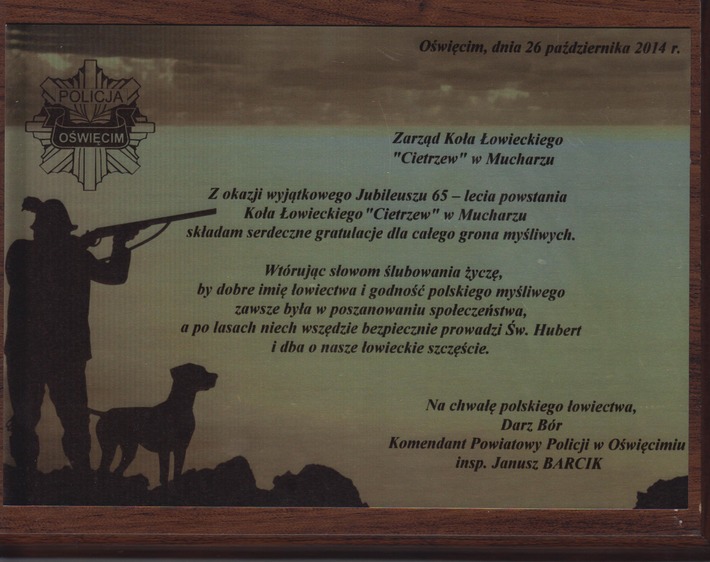 Oświęcim, dnia 26 października 2014 r.
POLICJA
OŚWIĘCIM
Zarząd Koła Łowieckiego
"Cietrzew" w Mucharzu
Z okazji wyjątkowego Jubileuszu 65 – lecia powstania
Koła Łowieckiego "Cietrzew" w Mucharzu
składam serdeczne gratulacje dla całego grona myśliwych.
Wtórując słowom ślubowania życzę,
by dobre imię łowiectwa i godność polskiego myśliwego
zawsze była w poszanowaniu społeczeństwa,
a po lasach niech wszędzie bezpiecznie prowadzi Św. Hubert
i dba o nasze łowieckie szczęście.
Na chwałę polskiego łowiectwa,
Darz Bór
Komendant Powiatowy Policji w Oświęcimiu
insp. Janusz BARCIK